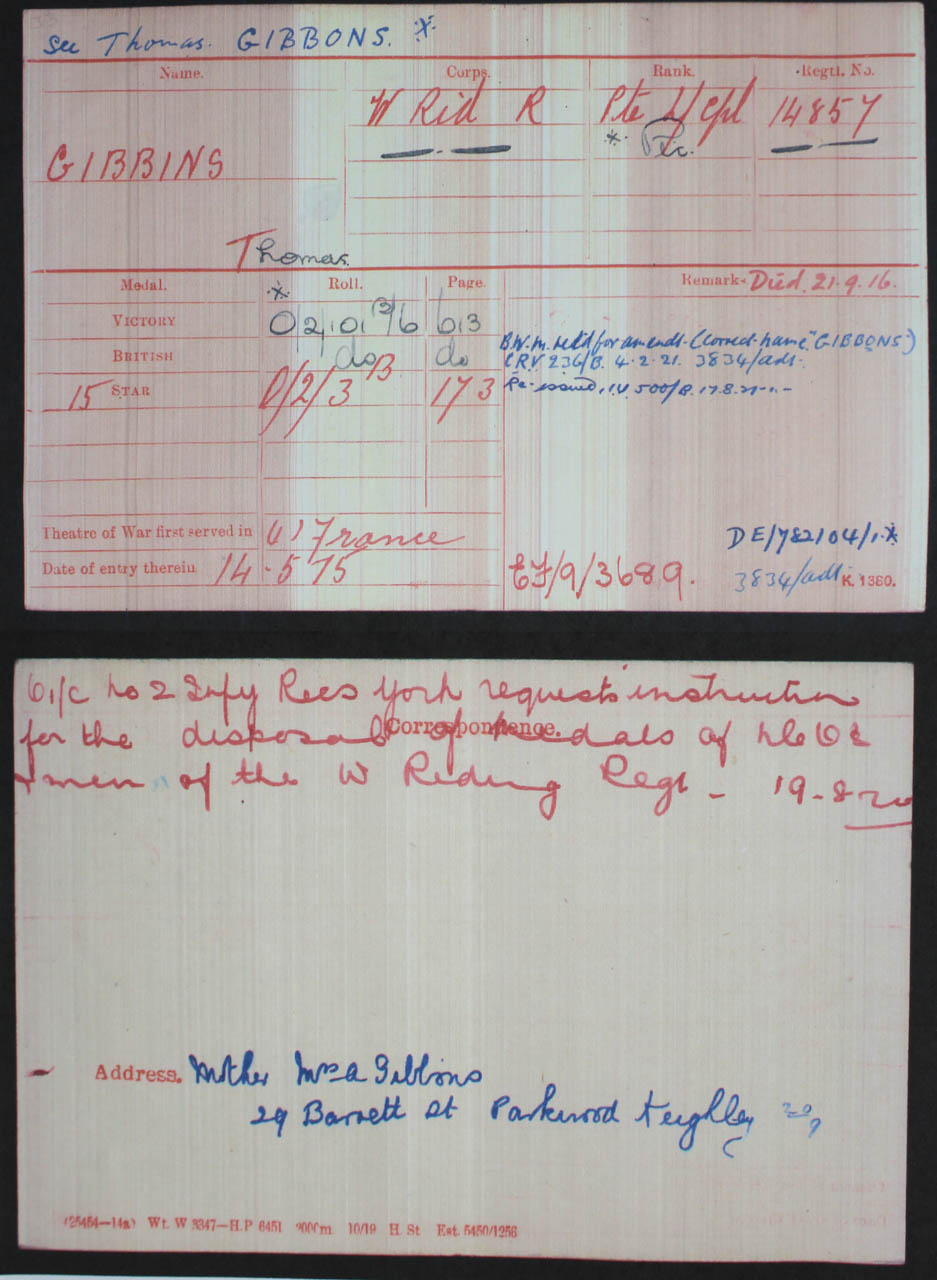 See Thomas. GIBBONS. *
Name. Corps. Rank. Regtl. No.
W Rid R Pte L/Cpl 14857
* Pte.
GIBBINS
Thomas.
Medal. Roll. Page. Remarks Died. 21.9.16.
*
VICTORY O/2/101 B/6 613
BRITISH do do
B.W.M. retd for amendt. (Correct name "GIBBONS")
CRV 236/B. 4.2.21. 3834/adt.
15 STAR O/2/3 B 173
Re-issued, 500/B. 17.8.21
Theatre of War first served in (1) France
DE/782104/1.*
Date of entry therein 14.5.15
EF/9/3689. 3834/adt. K. 1380.
O i/c No 2 Infy Recs York requests instruction
Correspondence.
for the disposal of medals of
men of the W Riding Regt - 19-8-20
Address. Mother Mrs A Gibbons
29 Barrett St Parkwood Keighley
(25454—14a) Wt. W 3347—H.P 6451 2000m 10/19 H. St Est. 5450/1256